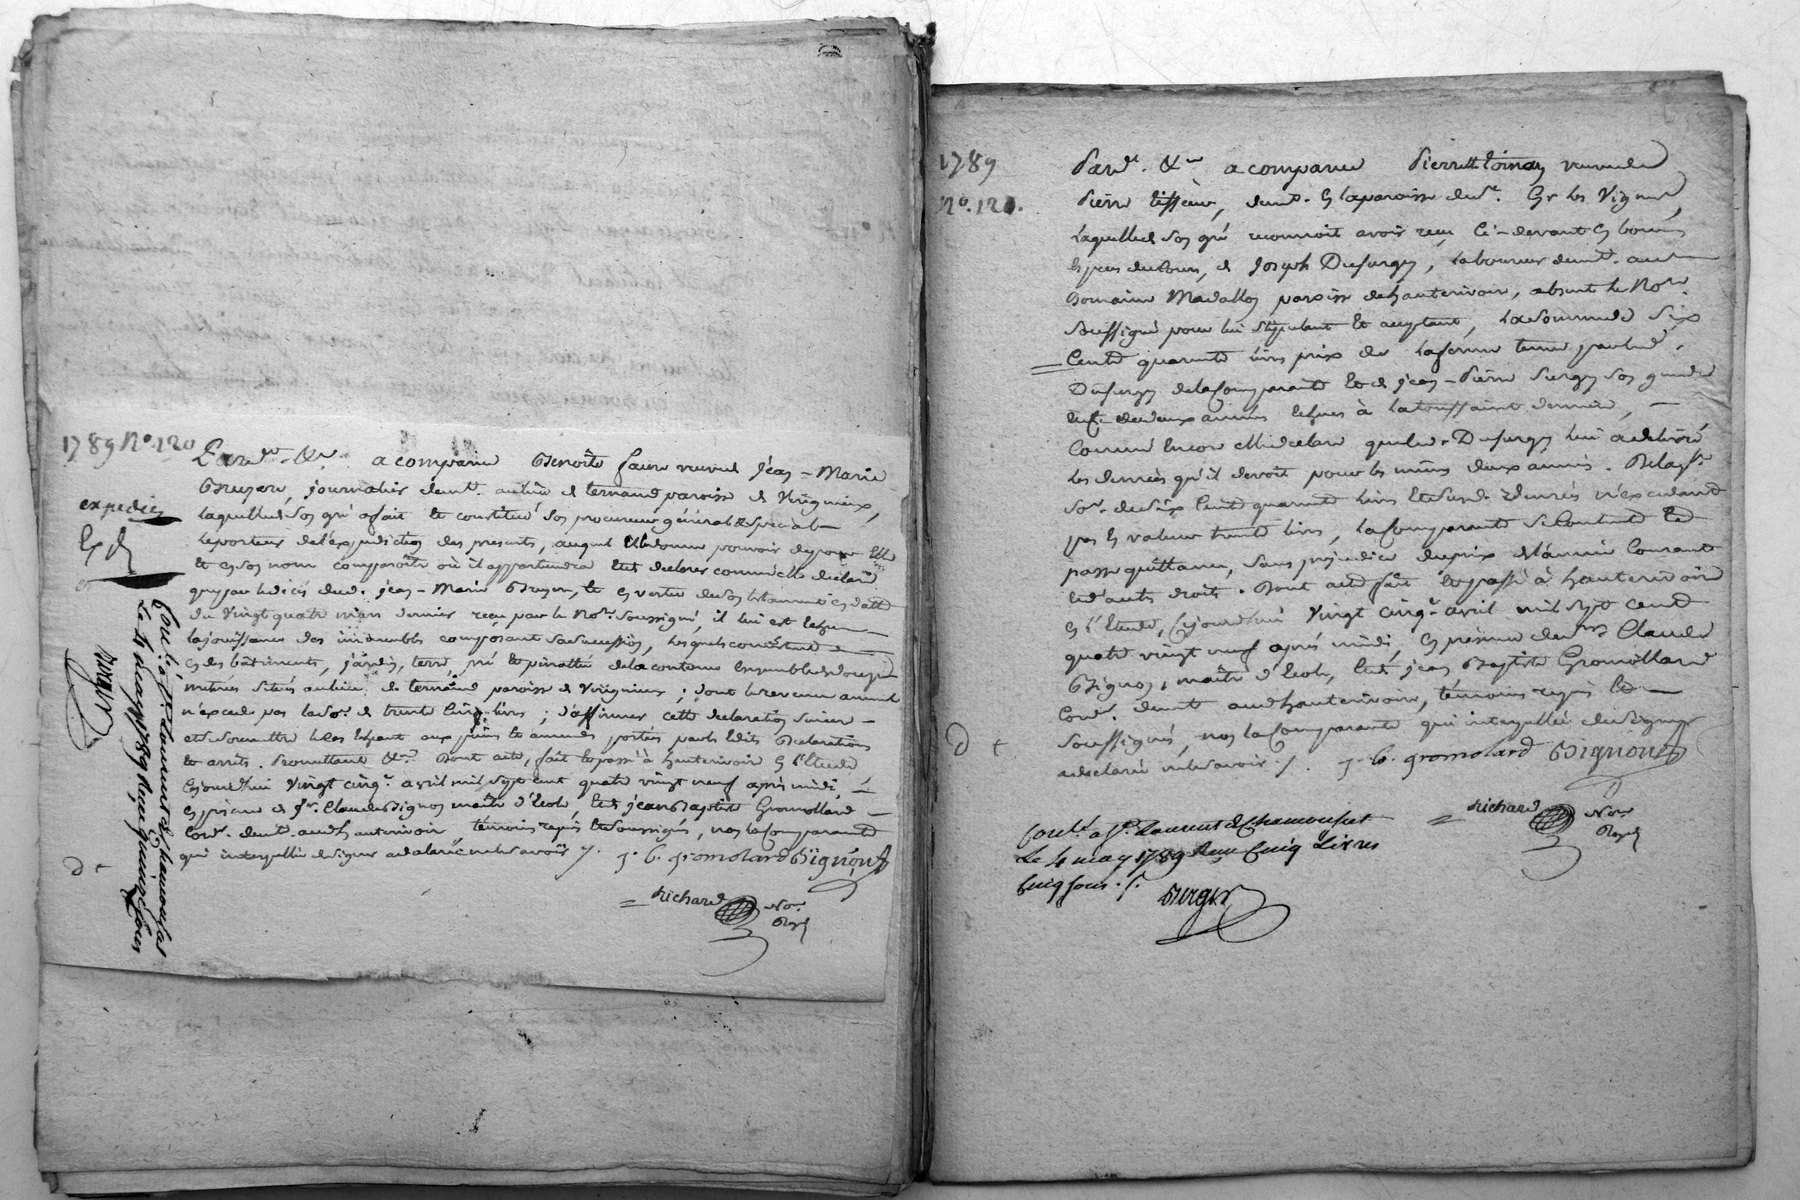 1789 N°. 120
expedié
Pard.t &.a a comparue Benoite faure veuve de jean-Marie
Bruyere, journalier demt. au lieu de ternand paroisse de Virigneux,
laquelle de son gré a fait et constitué son procureur général & special
le porteur de l'expedition des presentes, auquel elle donne pouvoir de pour elle
et en son nom comparoître où il appartiendra et de declarer comme elle declare
que par le decès dud. jean-Marie Bruyere, et en vertu de son testament en datte
du vingt quatre mars dernier reçu par le No.re soussigné, il lui est echu
la jouissance des immeubles composant sa succession, lesquels consistent
en des bâtiments, jardin, terre, pré et
situés au lieu de ternand paroisse de Virigneux ; dont le revenu annuel
n'excede pas la So.e de trente cinq livres ; d'affirmer cette declaration sincere
et de soumettre le cas echeant aux peines et amendes portées par les Edits Declarations
et arrets. Promettant &.a Dont acte, fait et passé à hauterivoir en l'Etude
cejourd'hui vingt cinq.e avril mil sept cent quatre vingt neuf après midi,
en présence de s.r Claude Bignon maître d'école, et de jean Baptiste Gromollard
Cord.r demt. aud. hauterivoir, témoins requis et soussignés, non la comparante
qui interpellée de signer a declaré ne le savoir ./.
j. b. gromolard Bignon
Richard No.re Royal
Con.lé à St. Laurent de Chamousset
Le 4 may 1789 Reçu quinze sous
Burger
1789
N°. 121.
Pard.t &.a a comparue Pierrette Loinay veuve de
Pierre Tissieur, demt. en la paroisse de St. Cyr les Vignes,
laquelle de son gré reconnoit avoir reçu ci-devant en bonnes
especes de cours, de Joseph Dufurgey, laboureur demt. au
Domaine Madallon paroisse de hauterivoir, absent le No.re
soussigné pour lui stipulant et acceptant, la somme de six
cent quarente livres prix de la ferme tenue par led.
Dufurgey de la comparante et de jean-Pierre Furgey son gendre
de deux années echues à la toussaint derniere,
comme encore elle declare que led. Dufurgey lui a delivré
les denrées qu'il devoit pour les mêmes deux années. De laq.le
So.e de six cent quarente livres et desd. denrées n'excedant
pas en valeur trente livres, la comparante se contente et
passe quittance, sans prejudice du prix de l'année courante
et d'autres droits. Dont acte fait et passé à hauterivoire
en l'Etude, cejourd'hui vingt cinq.e avril mil sept cent
quatre vingt neuf après midi, en présence de s.rs Claude
Bignon, maître d'école, et de jean Baptiste Gromollard
Cord.r demt. aud. hauterivoir, témoins requis et
soussignés, non la comparante qui interpellée de signer
a declaré ne le savoir ./. j. b. gromolard Bignon
Richard No.re Royal
Con.lé à St. Laurent de Chamousset
Le 4 may 1789 Reçu Cinq Livres
Cinq sous ./.
Burger